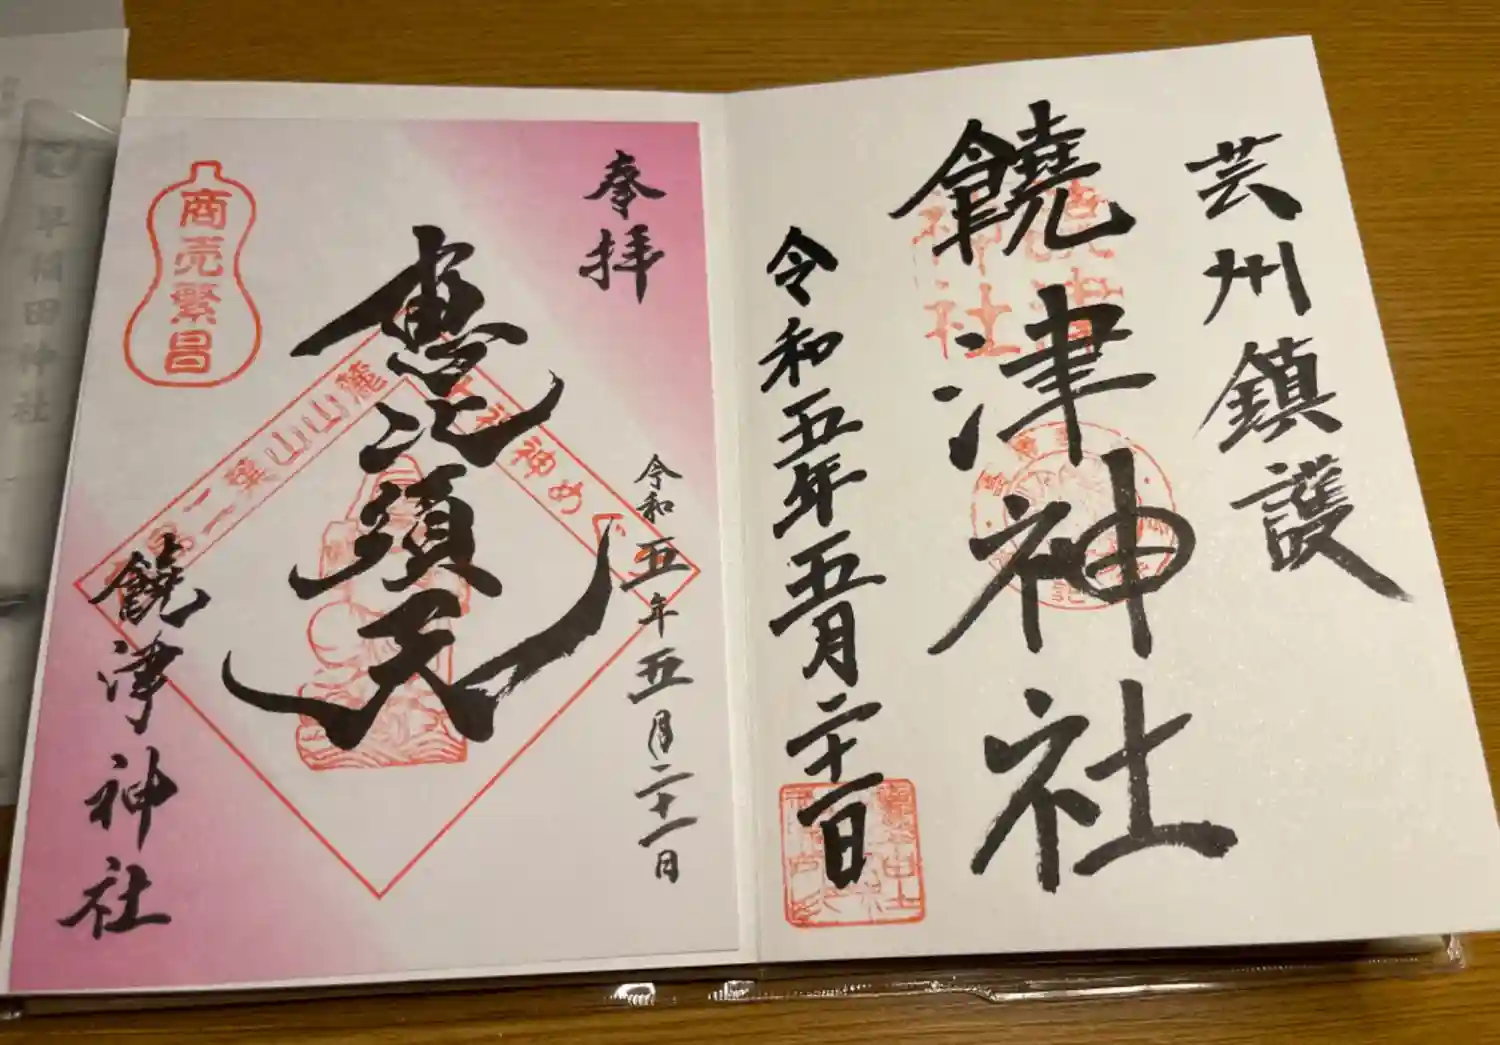 芸州鎮護
饒津神社
令和五年五月二十一日
奉拝
令和五年五月二十一日
恵比須天
商売繁昌
二葉山山麓
七福神めぐり
饒津神社
早稲田神社